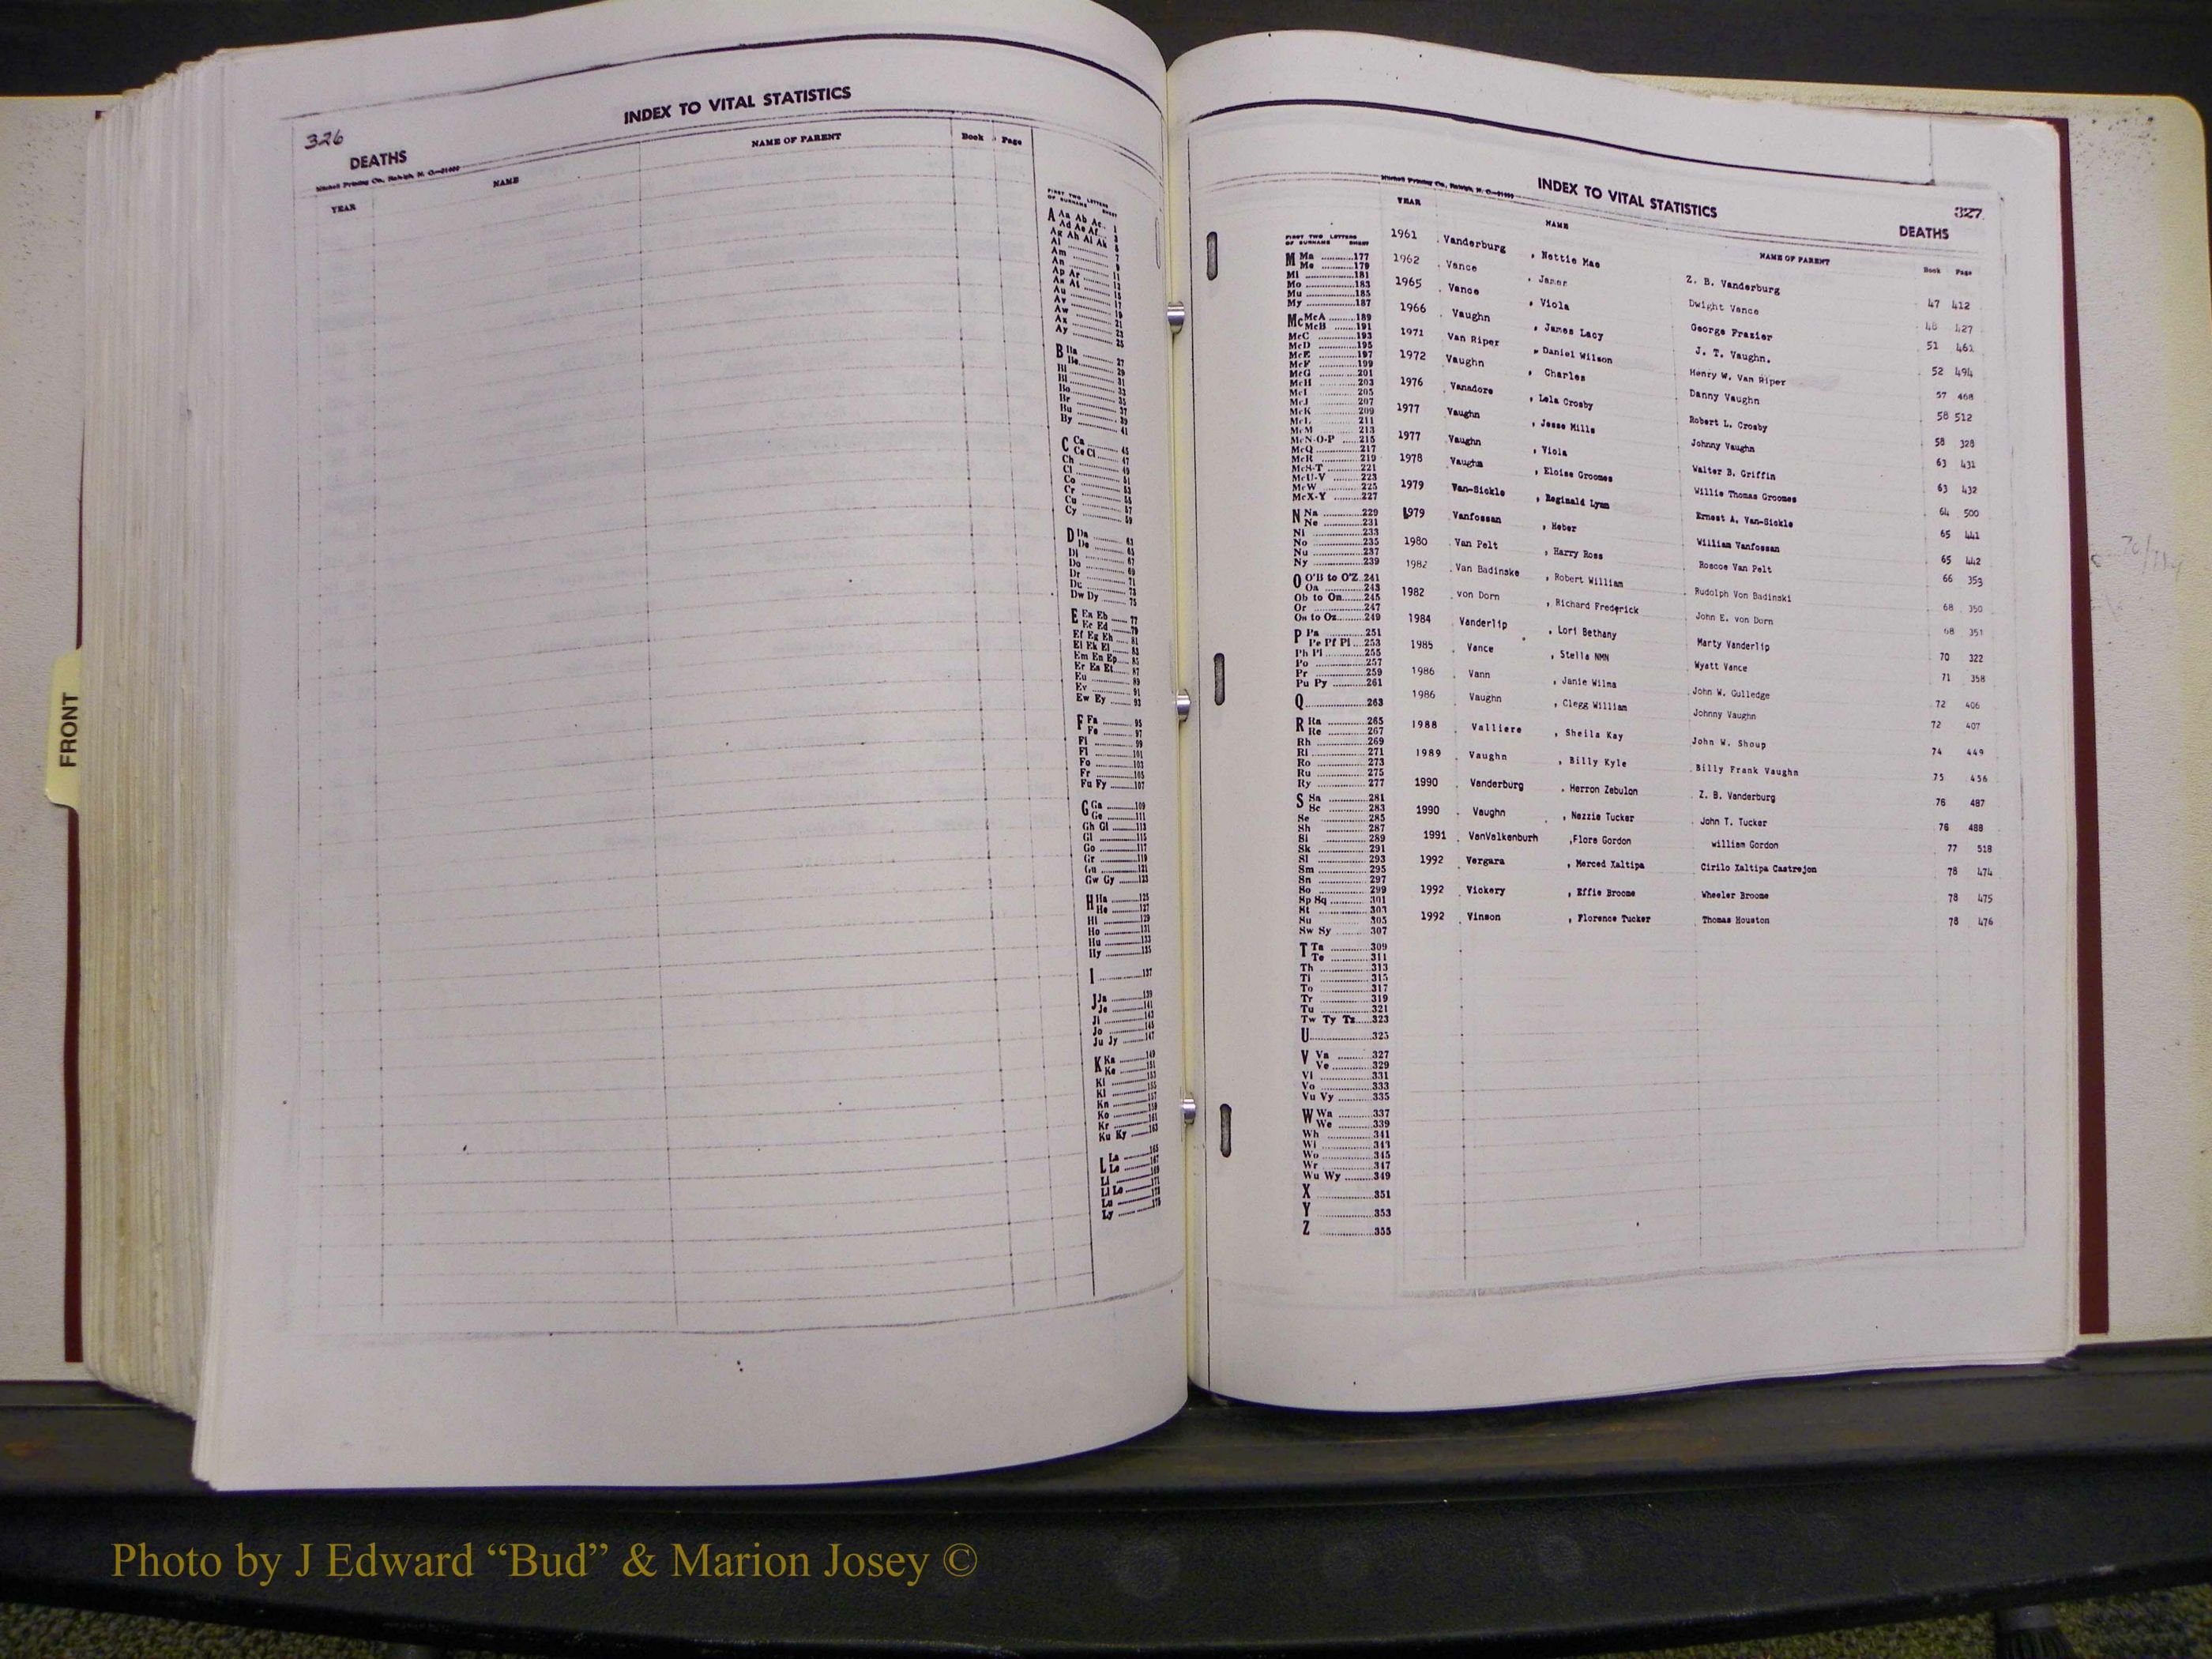 326
INDEX TO VITAL STATISTICS
DEATHS
Mitchell Printing Co., Raleigh, N. C.
YEAR NAME NAME OF PARENT Book Page
FIRST TWO LETTERS OF SURNAME SHEET
A Aa Ab Ac 1
Ad Ae Af 3
Ag Ah Ai Ak 5
Al 7
Am 9
An
Ap Ar 11
As At 13
Au 15
Av 17
Aw 19
Ax 21
Ay 23
25
B Ba 27
Be 29
Bi 31
Bl 33
Bo 35
Br 37
Bu 39
By 41
C Ca 45
Ce Ci 47
Ch 49
Cl 51
Co 53
Cr 55
Cu 57
Cy 59
D Da 63
De 65
Di 67
Do 69
Dr 71
Du 73
Dw Dy 75
E Ea Eb 77
Ec Ed 79
Ef Eg Eh 81
Ei Ek El 83
Em En Ep 85
Er Es Et 87
Eu 89
Ev 91
Ew Ey 93
F Fa 95
Fe 97
Fi 99
Fl 101
Fo 103
Fr 105
Fu Fy 107
G Ga 109
Ge 111
Gh Gi 113
Gl 115
Go 117
Gr 119
Gu 121
Gw Gy 123
H Ha 125
He 127
Hi 129
Ho 131
Hu 133
Hy 135
I 137
J Ja 139
Je 141
Ji 143
Jo 145
Ju Jy 147
K Ka 149
Ke 151
Ki 153
Kl 155
Kn 157
Ko 159
Kr 161
Ku Ky 163
L La 165
Le 167
Li 169
Ll Lo 171
Lu 173
Ly 175
INDEX TO VITAL STATISTICS
327
DEATHS
Mitchell Printing Co., Raleigh, N. C.
YEAR NAME NAME OF PARENT Book Page
FIRST TWO LETTERS OF SURNAME SHEET
M Ma 177
Me 179
Mi 181
Mo 183
Mu 185
My 187
Mc McA 189
McB 191
McC 193
McD 195
McE 197
McF 199
McG 201
McH 203
McI 205
McJ 207
McK 209
McL 211
McM 213
McN-O-P 215
McQ 217
McR 219
McS-T 221
McU-V 223
McW 225
McX-Y 227
N Na 229
Ne 231
Ni 233
No 235
Nu 237
Ny 239
O O'B to O'Z 241
Oa 243
Ob to On 245
Or 247
Os to Oz 249
P Pa 251
Pe Pf Pl 253
Ph Pi 255
Po 257
Pr 259
Pu Py 261
Q 263
R Ra 265
Re 267
Rh 269
Ri 271
Ro 273
Ru 275
Ry 277
S Sa 281
Sc 283
Se 285
Sh 287
Si 289
Sk 291
Sl 293
Sm 295
Sn 297
So 299
Sp Sq 301
St 303
Su 305
Sw Sy 307
T Ta 309
Te 311
Th 313
Ti 315
To 317
Tr 319
Tu 321
Tw Ty Tz 323
U 325
V Va 327
Ve 329
Vi 331
Vo 333
Vu Vy 335
W Wa 337
We 339
Wh 341
Wi 343
Wo 345
Wr 347
Wu Wy 349
X 351
Y 353
Z 355
1961 Vanderburg , Nettie Mae Z. B. Vanderburg 47 412
1962 Vance , James Dwight Vance 48 427
1965 Vance , Viola George Frazier 51 461
1966 Vaughn , James Lacy J. T. Vaughn. 52 494
1971 Van Riper , Daniel Wilson Henry W. Van Riper 57 468
1972 Vaughn , Charles Danny Vaughn 58 512
1976 Vanadore , Lela Crosby Robert L. Crosby 58 328
1977 Vaughn , Jesse Mills Johnny Vaughn 63 431
1977 Vaughn , Viola Walter B. Griffin 63 432
1978 Vaughn , Eloise Groomes Willie Thomas Groomes 64 500
1979 Van-Sickle , Reginald Lynn Ernest A. Van-Sickle 65 441
1979 Vanfossan , Heber William Vanfossan 65 442
1980 Van Pelt , Harry Ross Roscoe Van Pelt 66 353
1982 Van Badinske , Robert William Rudolph Von Badinski 68 350
1982 von Dorn , Richard Frederick John E. von Dorn 68 351
1984 Vanderlip , Lori Bethany Marty Vanderlip 70 322
1985 Vance , Stella NMN Wyatt Vance 71 358
1986 Vann , Janie Wilma John W. Gulledge 72 406
1986 Vaughn , Clegg William Johnny Vaughn 72 407
1988 Valliere , Sheila Kay John W. Shoup 74 449
1989 Vaughn , Billy Kyle Billy Frank Vaughn 75 456
1990 Vanderburg , Herron Zebulon Z. B. Vanderburg 76 487
1990 Vaughn , Nezzie Tucker John T. Tucker 76 488
1991 VanValkenburh ,Flore Gordon william Gordon 77 518
1992 Vergara , Merced Xaltipa Cirilo Xaltipa Castrejon 78 474
1992 Vickery , Effie Broome Wheeler Broome 78 475
1992 Vinson , Florence Tucker Thomas Houston 78 476
FRONT
Photo by J Edward “Bud” & Marion Josey ©